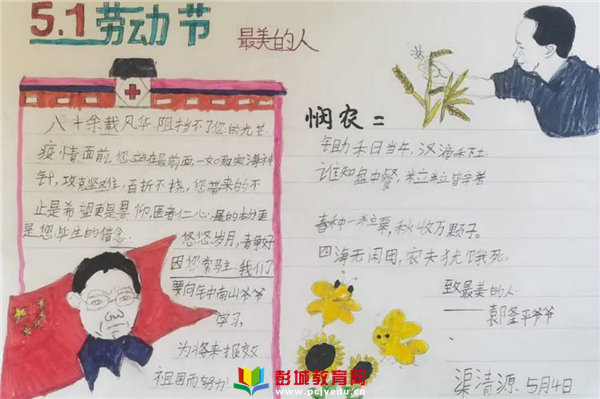 5.1劳动节
最美的人
八十余载风华,阻挡不了您的光芒
疫情面前,您站在最前面,一如既
针,攻克坚,百折不挠,您带来的不
止是希望更是景仰,医者仁心,是的本分更
是您毕生的信念
悠悠岁月,青
因您常驻,我们
要向钟南山爷爷
学习,
为将来报效
祖国而努力!
悯农二
锄禾日当午,汗滴禾下土
谁知盘中餐,粒粒皆辛苦
春种一粒粟,秋收万颗子。
四海无闲田,农夫犹饿死。
致最美的人
——袁隆平爷爷
渠清源 5月4日
彭城教育网
www.pcjyedu.cn